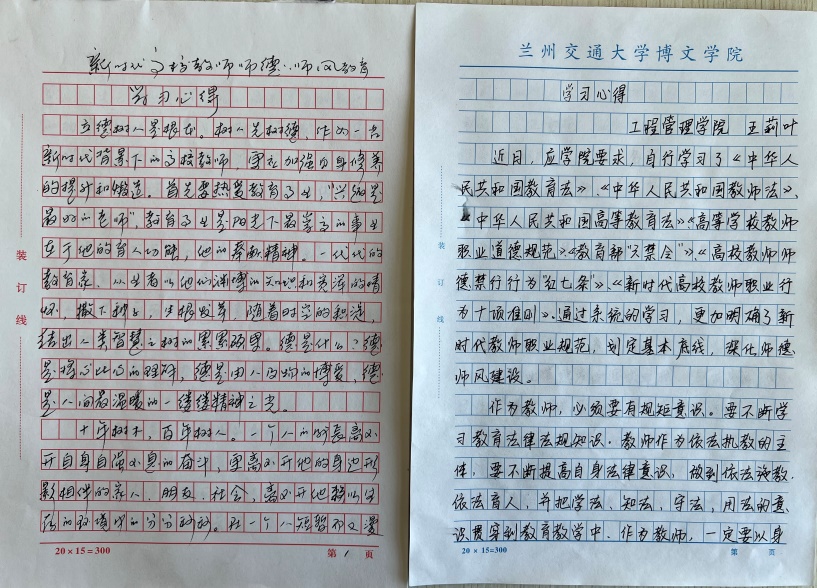 新时代高校教师师德师风教育
学习心得
立德树人是根本。树人先树德,作为一名
新时代背景下的高校教师 更应加强自身修养
的提升和锻造。首先要热爱教育事业,"兴趣是
最好的老师",教育事业是阳光下最崇高的事业
在于他的育人功能,他的奉献精神。一代代的
教育家、从业者以他们渊博的知识和宽深的情
怀,撒下种子,生根发芽,随着时光的积淀,
结出人类智慧之树的累累硕果。德是什么?德
是将心比心的理解,德是由人及物的博爱,德
是人间最温暖的一缕缕精神之光。
十年树木,百年树人。一个人的成长离不
开自身自强不息的奋斗,更离不开他的身边形
影相伴的家人、朋友、社会,离不开他赖以生
活的环境中的分分秒秒。在一个人短暂而又漫
装订线
20×15=300
第 1 页
兰州交通大学博文学院
学习心得
工程管理学院 王莉叶
近日,应学院要求,自行学习了《中华人
民共和国教育法》、《中华人民共和国教师法》、
《中华人民共和国高等教育法》《高等学校教师
职业道德规范》《教育部"六禁令"》、《高校教师师
德禁行行为"红七条"》、《新时代高校教师职业行
为十项准则》。通过系统的学习,更加明确了新
时代教师职业规范,划定基本底线,深化师德
师风建设。
作为教师,必须要有规矩意识。要不断学
习教育法律法规知识。教师作为依法执教的主
体,要不断提高自身法律意识,做到依法施教、
依法育人,并把学法、知法、守法、用法的意
识贯穿到教育教学中。作为教师,一定要以身
装订线
20×15=300
第 页